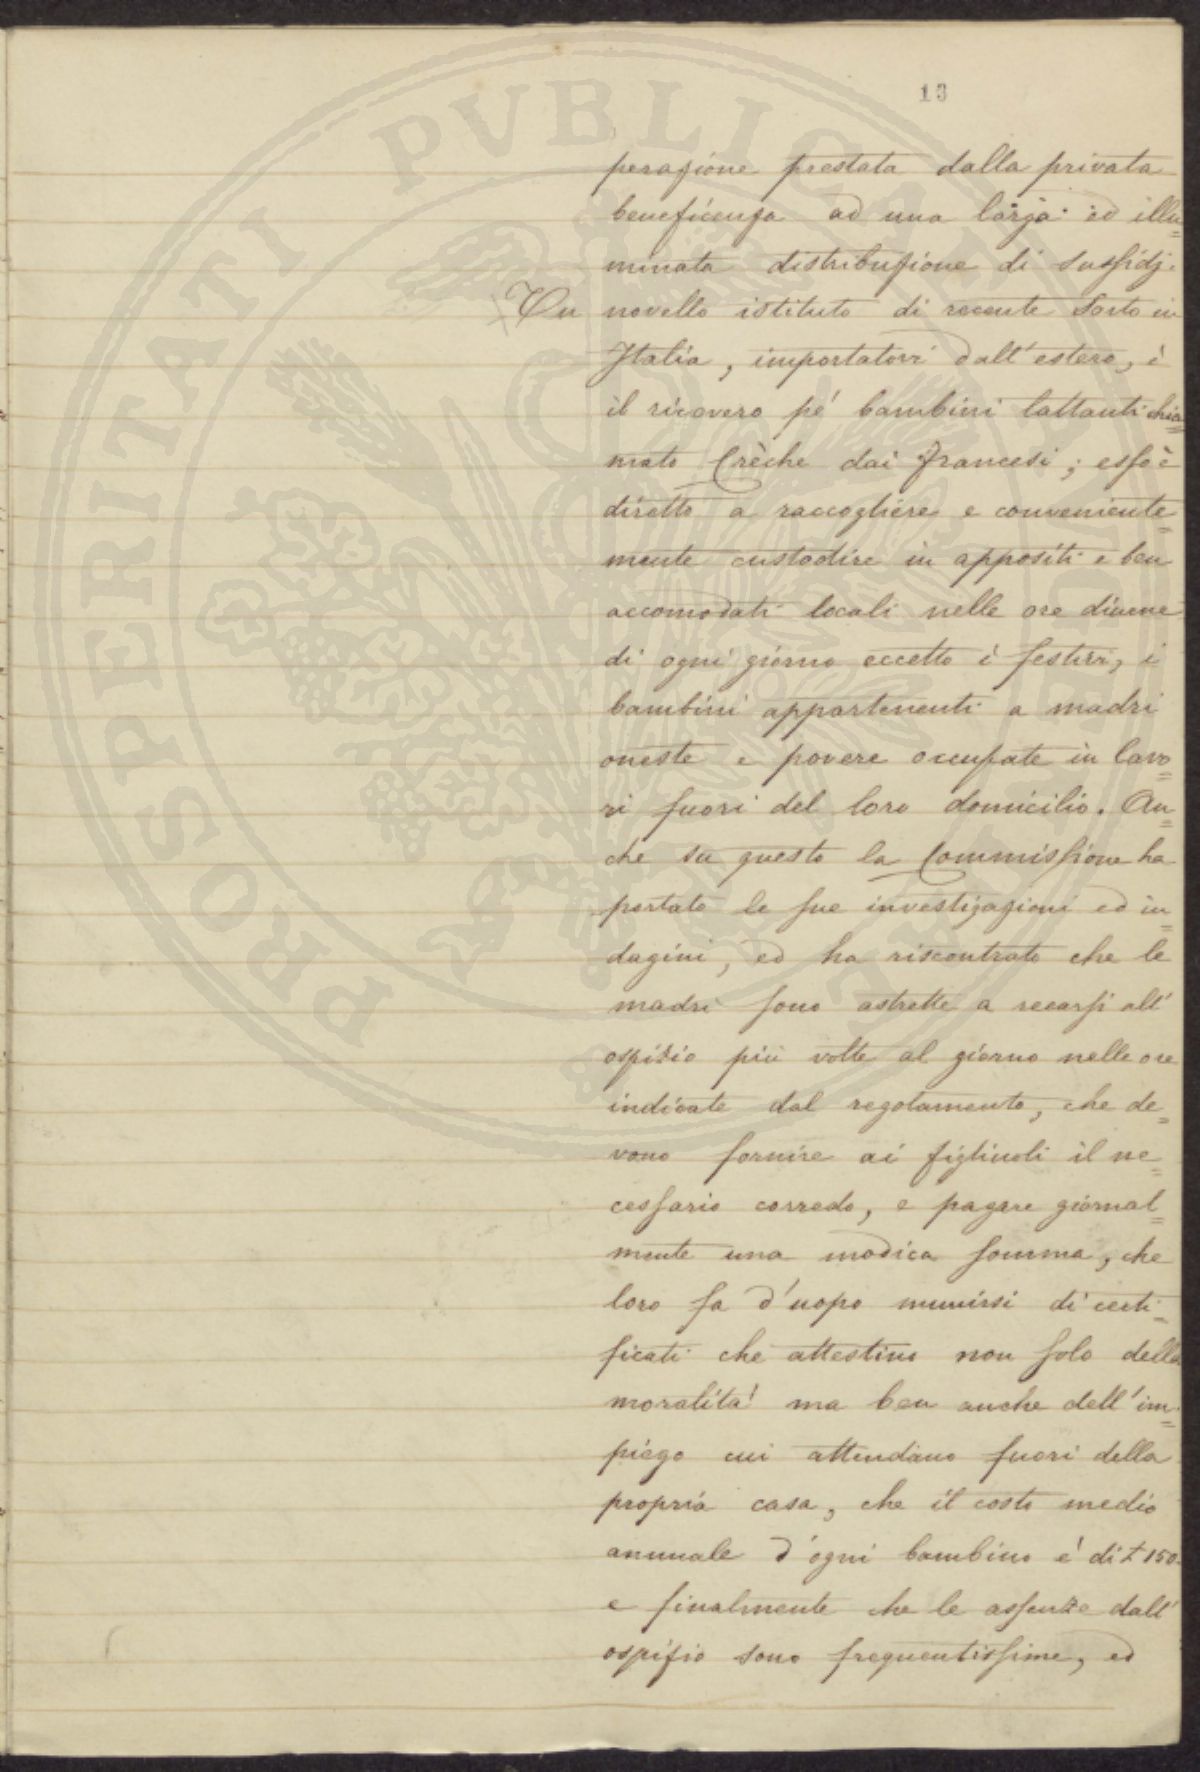 13
perazione prestata dalla privata
beneficenza ad una larga ed illu=
minata distribuzione di sussidj.
Un novello istituto di recente sorto in
Italia, importatovi dall'estero, è
il ricovero pe' bambini lattanti chia=
mato Crèche dai Francesi; esso è
diretto a raccogliere e conveniente=
mente custodire in appositi e ben
accomodati locali nelle ore diurne
di ogni giorno eccetto i festivi, i
bambini appartenenti a madri
oneste e povere occupate in lavo=
ri fuori del loro domicilio. An=
che su questo la Commissione ha
portato le sue investigazioni ed in=
dagini, ed ha riscontrato che le
madri sono astrette a recarsi all'
ospizio più volte al giorno nelle ore
indicate dal regolamento, che de=
vono fornire ai figliuoli il ne=
cessario corredo, e pagare giornal=
mente una modica somma, che
loro fa d'uopo munirsi di certi=
ficati che attestino non solo della
moralità ma ben anche dell'im=
piego cui attendano fuori della
propria casa, che il costo medio
annuale d'ogni bambino è di £ 150.
e finalmente che le assenze dall'
ospizio sono frequentissime, ed
PROSPERITATI PVBLICAE